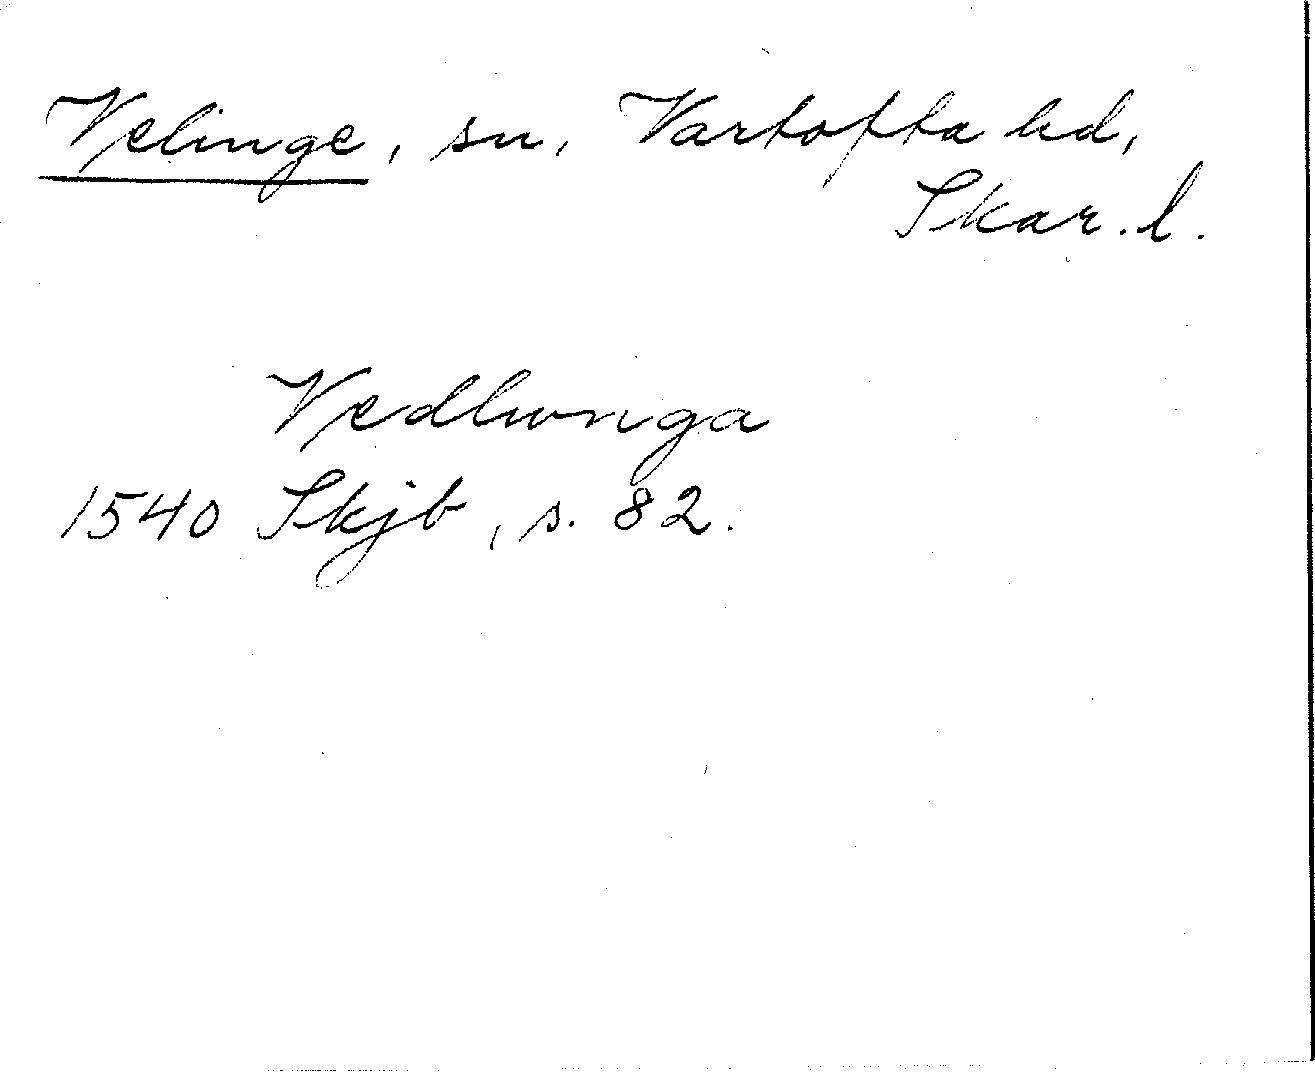 Velinge, sn, Vartofta hd,
Skar. l.
Vedlunga
1540 Skjb, s. 82.